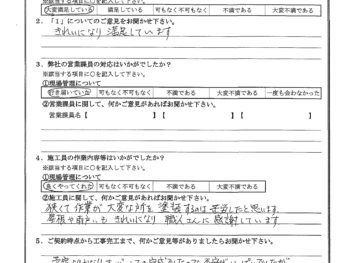 ※該当する項目に○を記入して下さい。
大変満足している 満足している 可もなく不可もなく 不満である 大変不満である
2．「1」についてのご意見をお聞かせ下さい。
きれいになり 満足しています
3．弊社の営業課員の対応はいかがでしたか？
※該当する項目に○を記入して下さい。
①現場管理について
行き届いていた 可もなく不可もなく 不満である 大変不満である 一度も会わなかった
②営業課員に関して、何かご意見があればお聞かせ下さい。
営業課員名【 】【 】【 】
4．施工員の作業内容等はいかがでしたか？
※該当する項目に○を記入して下さい。
①現場管理について
良くやってくれた 可もなく不可もなく 不満である 大変不満である
②施工員に関して、何かご意見があればお聞かせ下さい。
狭くて作業が大変な所を塗装するのは苦労したと思います。
屋根や雨どいもきれいになり 職人さんに感謝しています
5．ご契約時点から工事完工まで、何かご意見等がありましたらお聞かせ下さい。